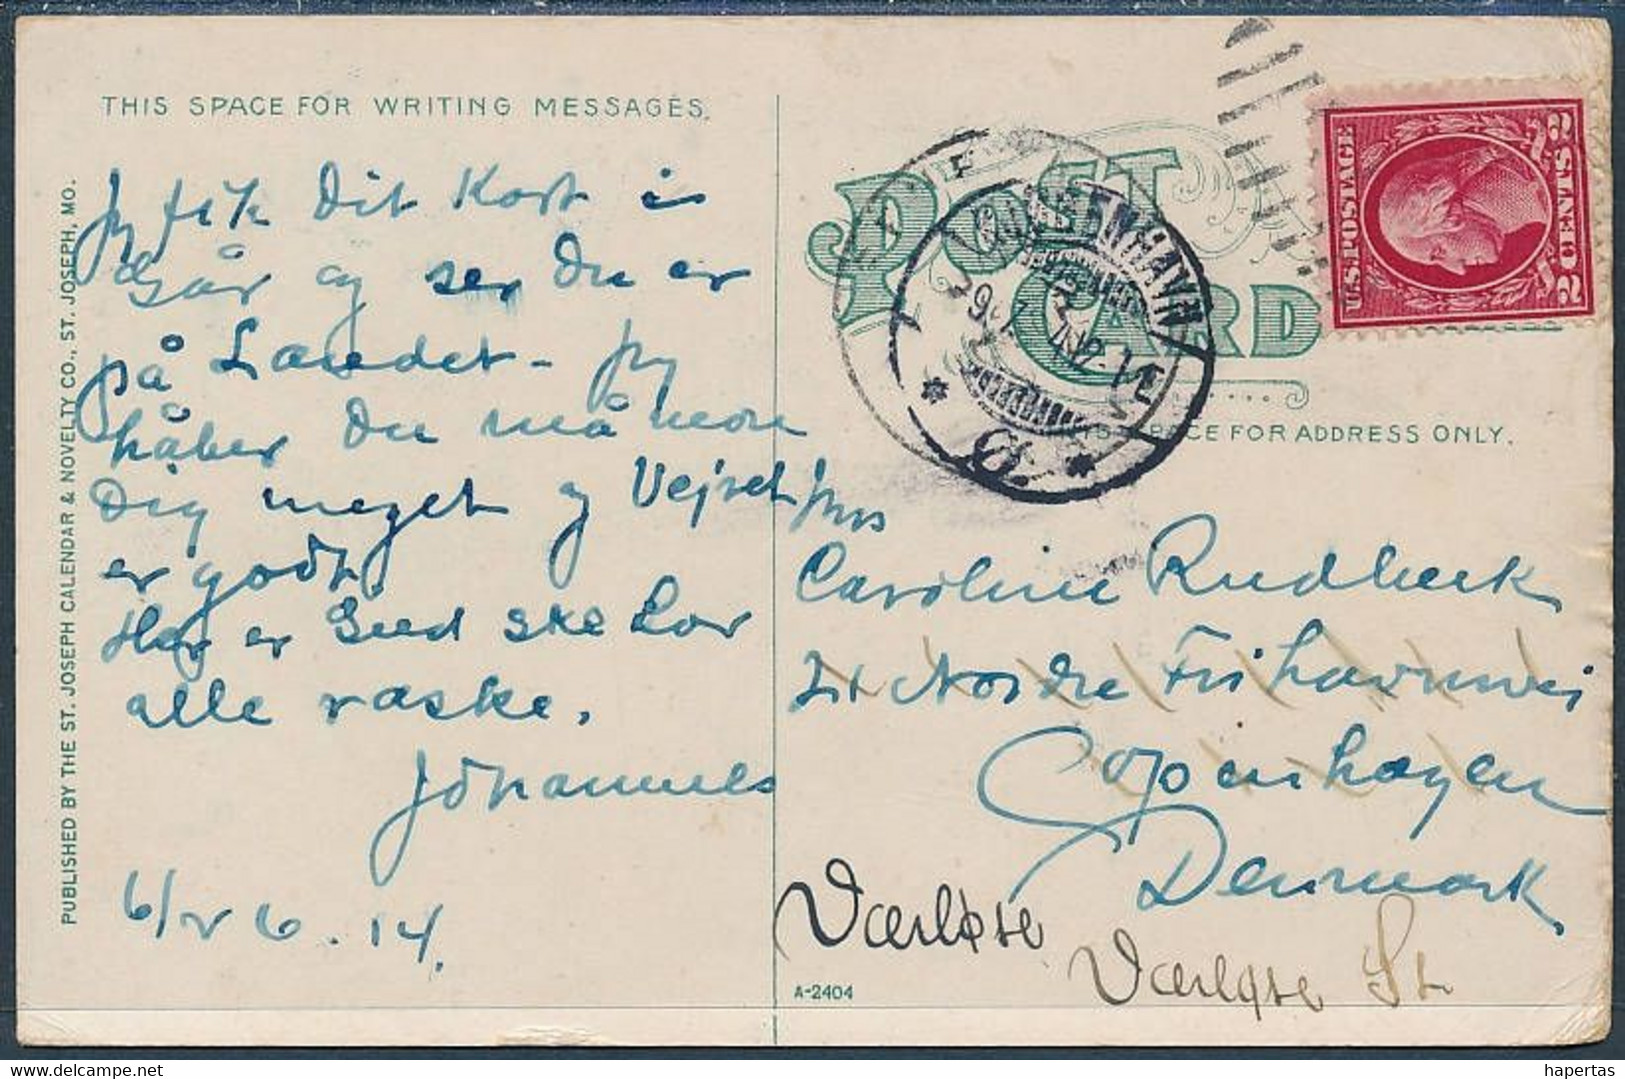 THIS SPACE FOR WRITING MESSAGES.
Jeg fik Dit Kort i
Går og ser Du er
på Landet - Jeg
håber Du må more
Dig meget og Vejret
er godt.
Her er Gud ske Lov
alle raske.
Johannes
6.14.
PUBLISHED BY THE ST. JOSEPH CALENDAR & NOVELTY CO., ST. JOSEPH, MO.
POST CARD
THIS SPACE FOR ADDRESS ONLY.
U.S. POSTAGE
2 CENTS 2
KJØBENHAVN
Mrs
Caroline Rudbeck
21 Nordre Frihavnsvej
Copenhagen
Denmark
Værløse
Værløse St
A-2404
hapertas